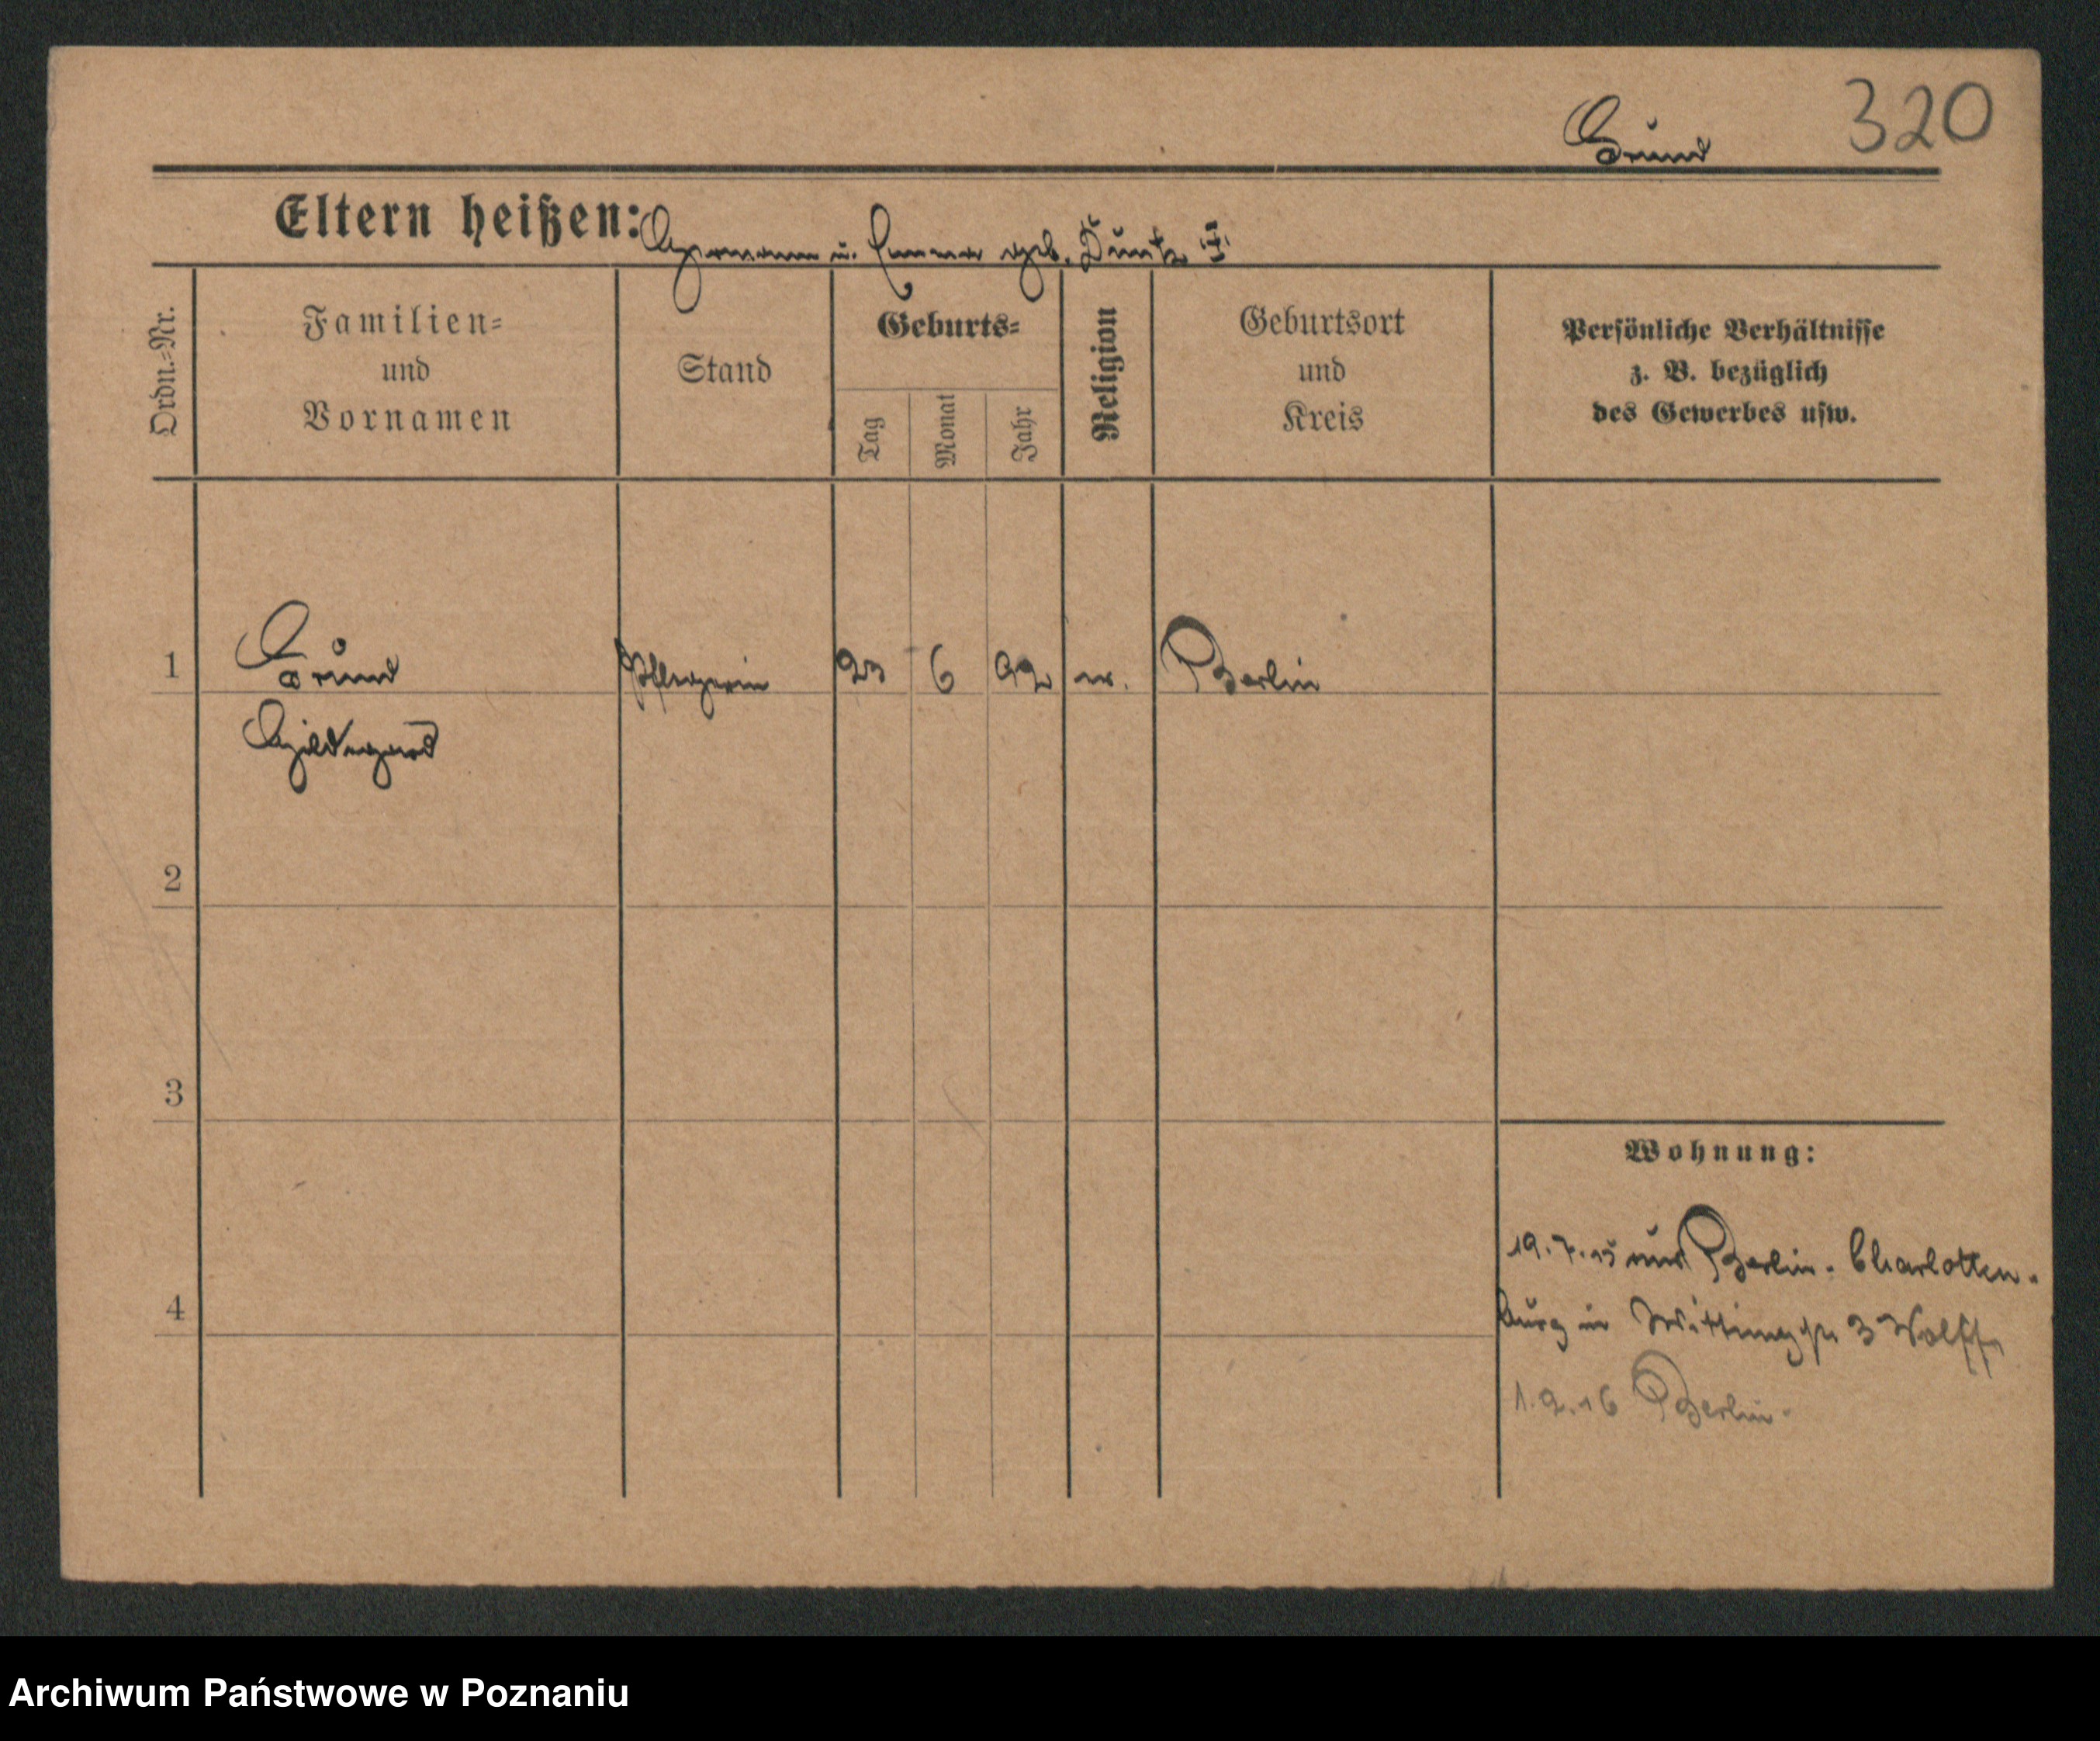 320
Grund
Eltern heißen: Hermann u. Emma geb.
Ordn.=Nr.
Familien=
und
Vornamen
Stand
Geburts=
Tag
Monat
Jahr
Religion
Geburtsort
und
Kreis
Persönliche Verhältnisse
z. B. bezüglich
des Gewerbes usw.
1 Grund Pflegerin 6 92 ev. Berlin
Hildegard
2
3
4
Wohnung:
19.7.15 aus Berlin-Charlotten-
burg in 3 Wolff
1.2.16 Berlin.
Archiwum Państwowe w Poznaniu